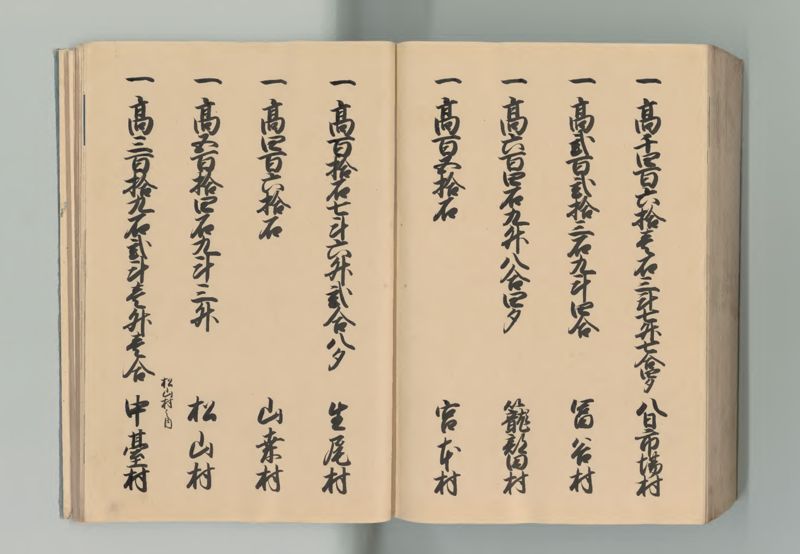 一 高千四百六拾壱石三斗七升七合四夕 八日市場村
一 高弐百弐拾三石九斗四合 冨谷村
一 高六百四石九升八合四夕 籠部田村
一 高百五拾石 宮本村
一 高百拾石七斗六升弐合八夕 生尾村
一 高四百六拾石 山桒村
一 高五百拾四石九斗三升 松山村
松山村之内
一 高三百拾九石弐斗壱升壱合 中臺村